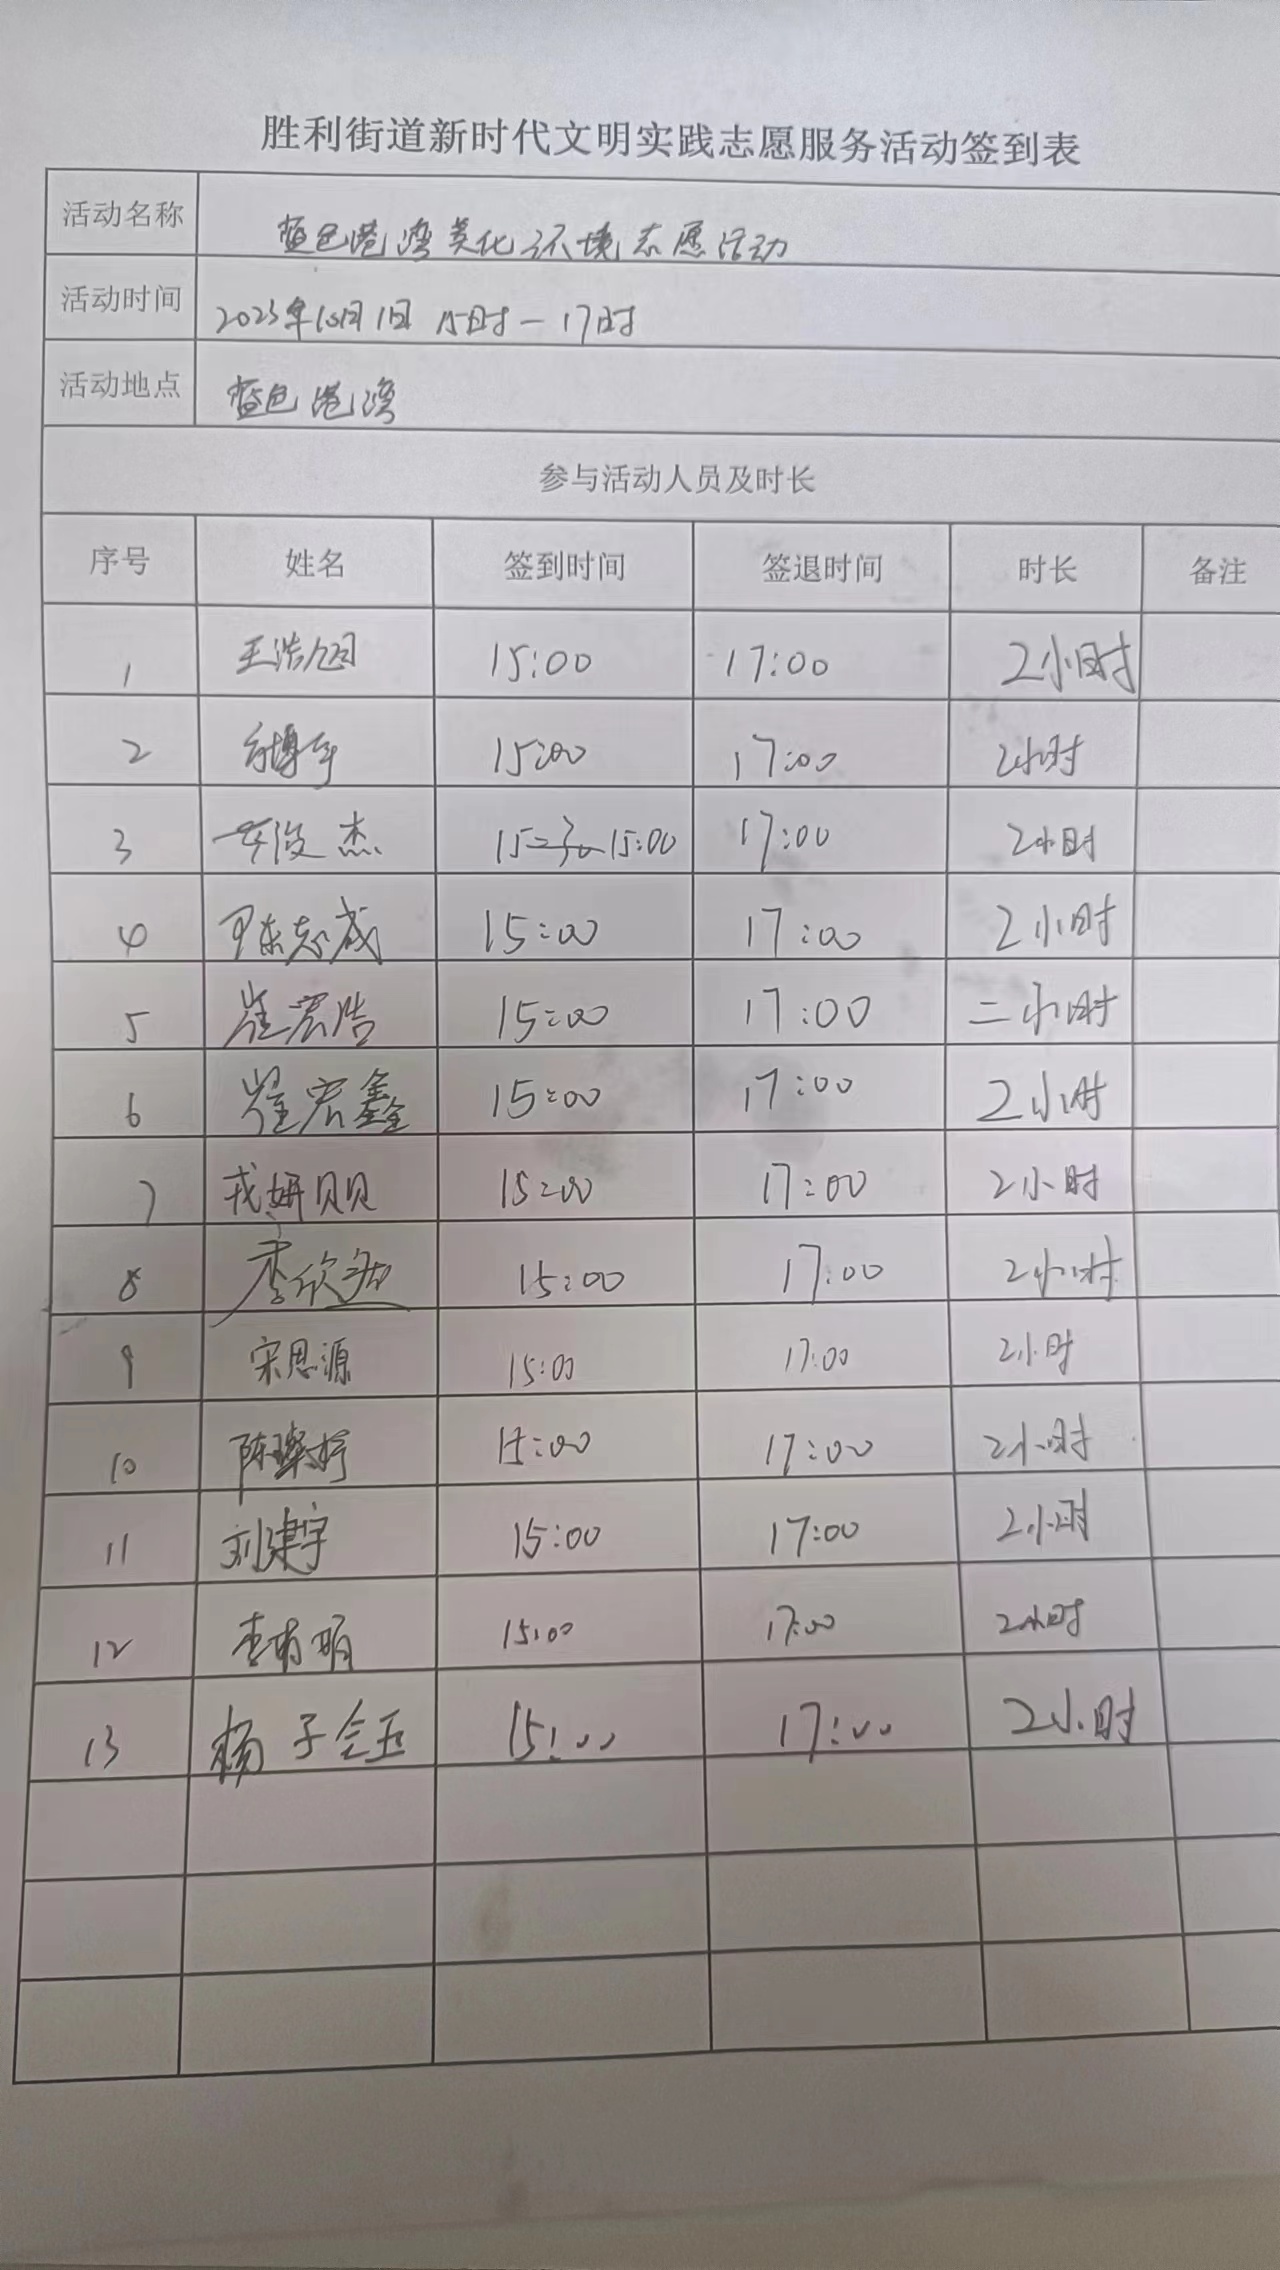 胜利街道新时代文明实践志愿服务活动签到表
活动名称 蓝色港湾美化环境志愿活动
活动时间 2023年10月1日 15时－17时
活动地点 蓝色港湾
参与活动人员及时长
序号 姓名 签到时间 签退时间 时长 备注
1 王浩旭 15:00 17:00 2小时
2 15:00 17:00 2小时
3 辛俊杰 15:00 17:00 2小时
4 陈志成 15:00 17:00 2小时
5 崔宏浩 15:00 17:00 二小时
6 崔宏鑫 15:00 17:00 2小时
7 戎妍贝贝 15:00 17:00 2小时
8 李欣 15:00 17:00 2小时
9 宋思源 15:00 17:00 2小时
10 陈璨婷 15:00 17:00 2小时
11 刘建宇 15:00 17:00 2小时
12 明 15:00 17:00 2小时
13 杨子钰 15:00 17:00 2小时